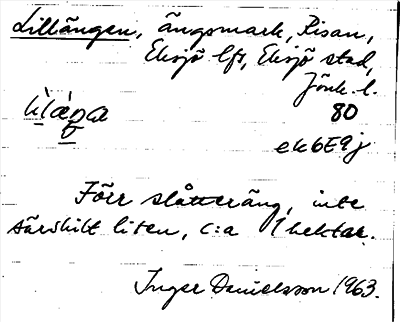 Lillängen, ängsmark, Risan,
Eksjö lfs, Eksjö stad,
Jönk. l.
80
ek6E9j
Förr slåtteräng, inte
särskilt liten, c:a 1 hektar.
Inger Danielsson 1963.